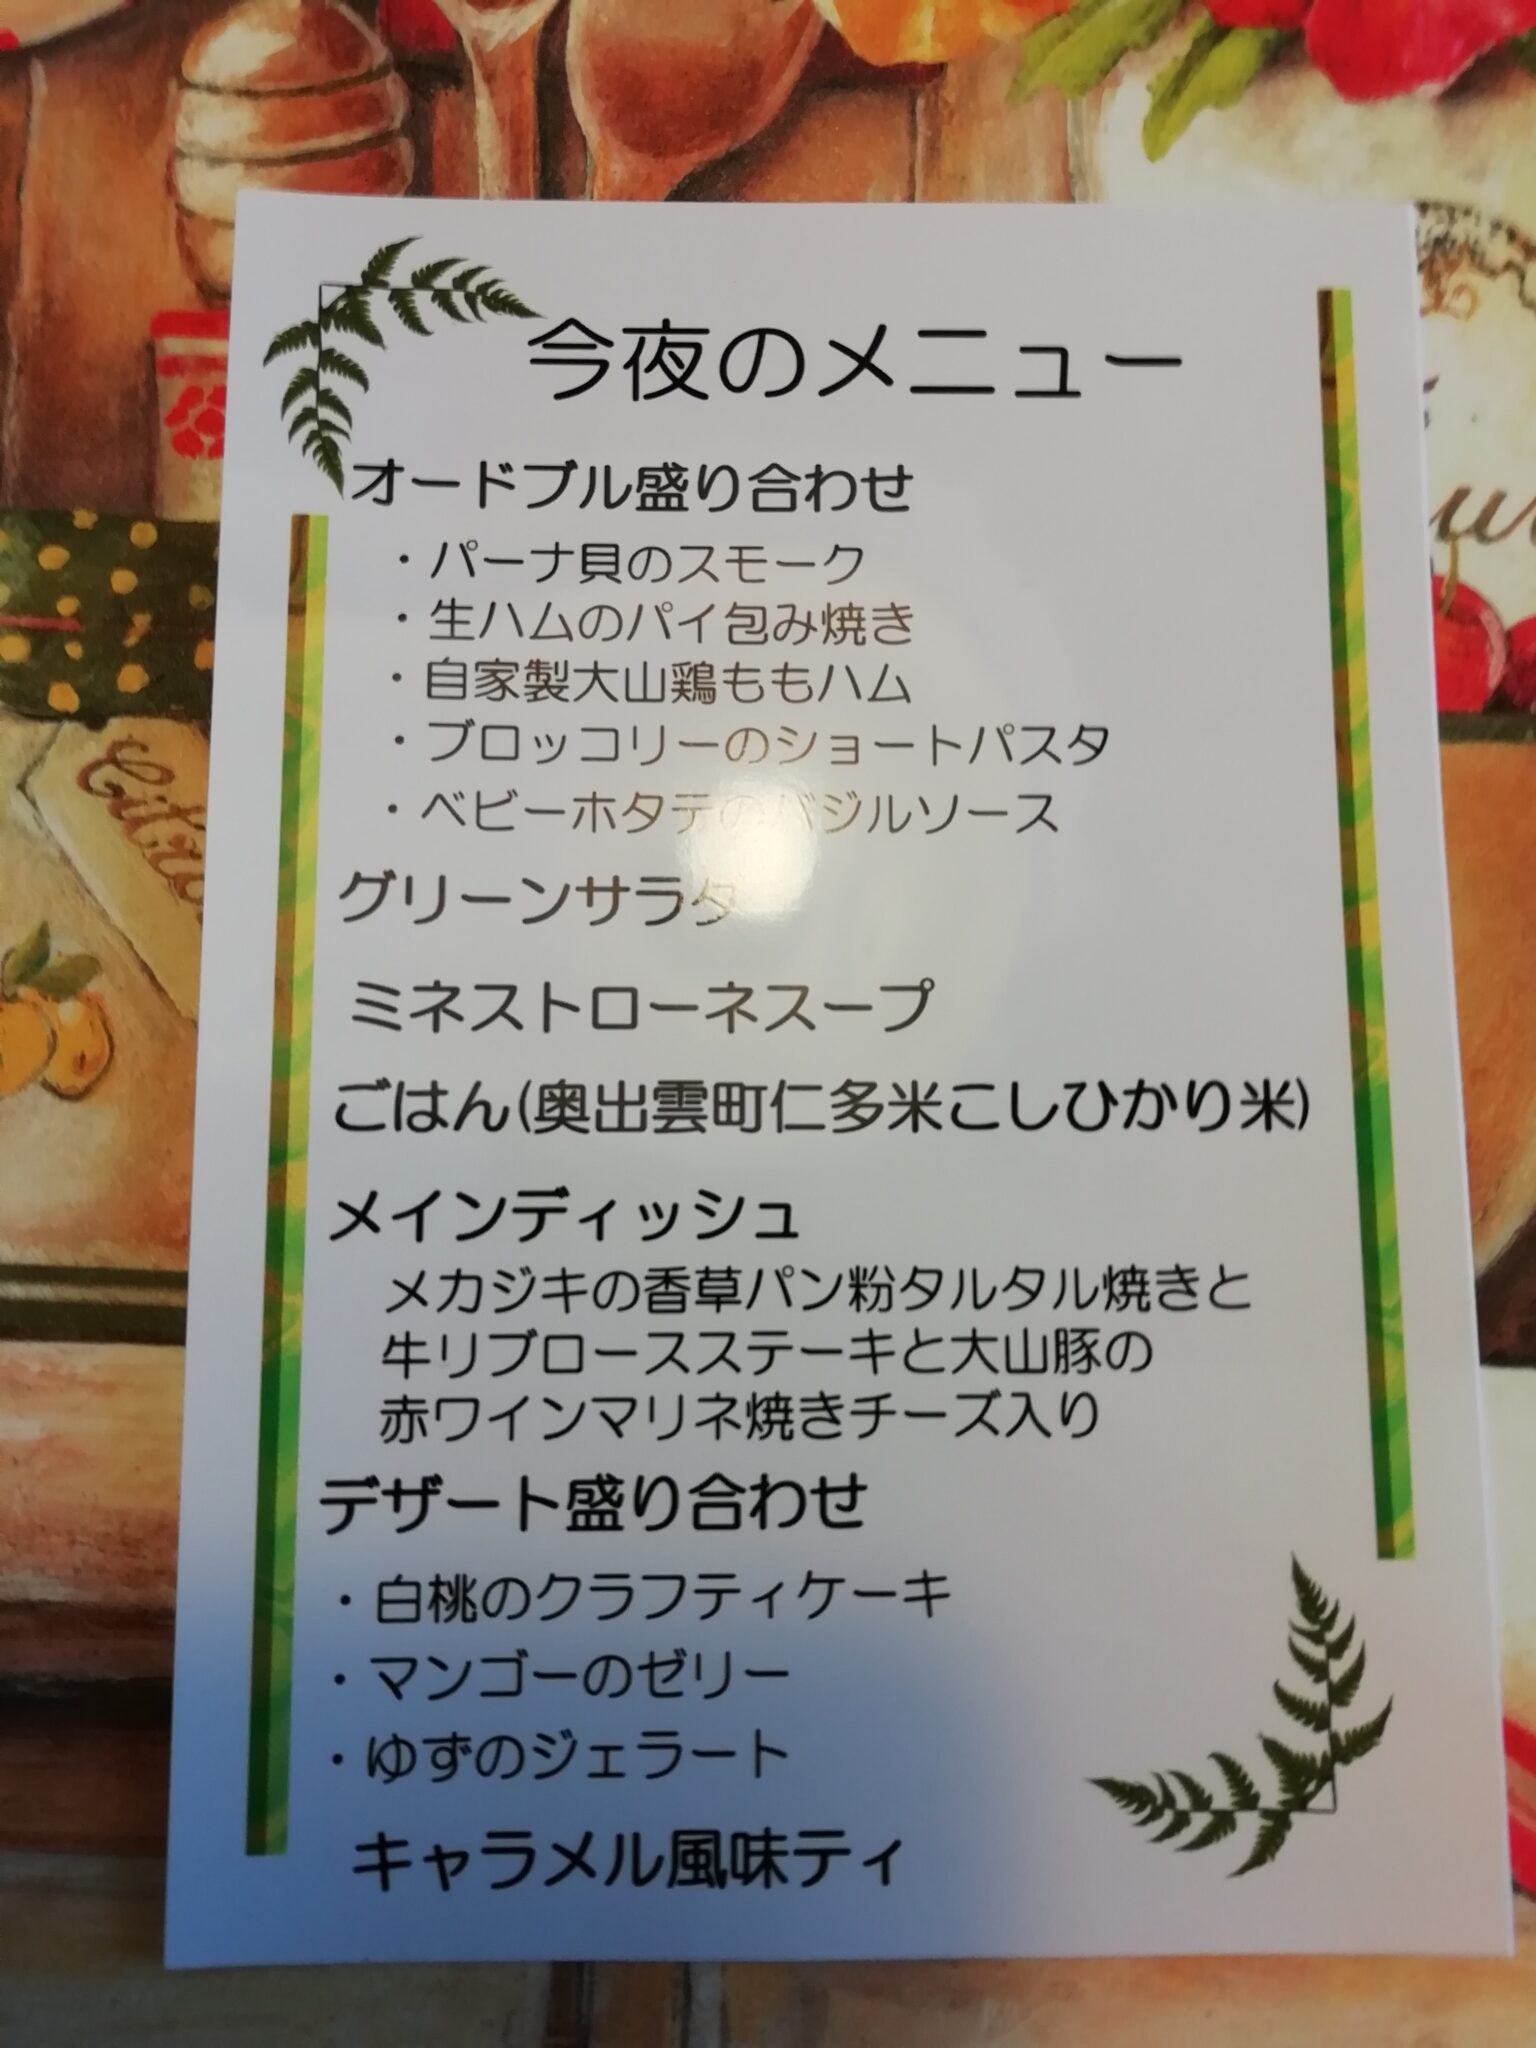 今夜のメニュー
オードブル盛り合わせ
・パーナ貝のスモーク
・生ハムのパイ包み焼き
・自家製大山鶏ももハム
・ブロッコリーのショートパスタ
・ベビーホタテのバジルソース
グリーンサラダ
ミネストローネスープ
ごはん(奥出雲町仁多米こしひかり米)
メインディッシュ
メカジキの香草パン粉タルタル焼きと
牛リブロースステーキと大山豚の
赤ワインマリネ焼きチーズ入り
デザート盛り合わせ
・白桃のクラフティケーキ
・マンゴーのゼリー
・ゆずのジェラート
キャラメル風味ティ